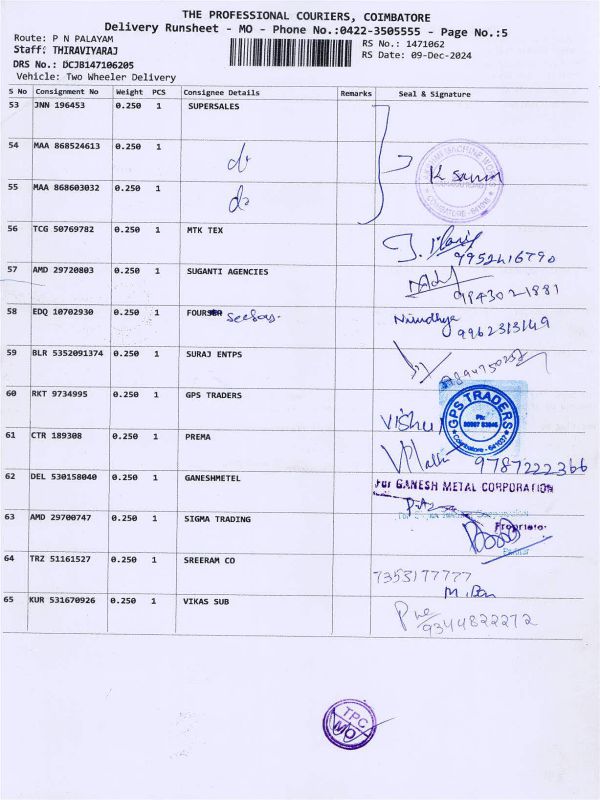 THE PROFESSIONAL COURIERS, COIMBATORE
Delivery Runsheet - MO - Phone No.:0422-3505555 - Page No.:5
Route: P N PALAYAM RS No.: 1471062
Staff: THIRAVIYARAJ RS Date: 09-Dec-2024
DRS No.: DCJB147106205
Vehicle: Two Wheeler Delivery
S No Consignment No Weight PCS Consignee Details Remarks Seal & Signature
53 JNN 196453 0.250 1 SUPERSALES
54 MAA 868524613 0.250 1 do
55 MAA 868603032 0.250 1 do
56 TCG 50769782 0.250 1 MTK TEX 9952416790
57 AMD 29720803 0.250 1 SUGANTI AGENCIES 9843021881
58 EDQ 10702930 0.250 1
59 BLR 5352091374 0.250 1 SURAJ ENTPS
60 RKT 9734995 0.250 1 GPS TRADERS
GPS TRADERS
Ph:
Coimbatore
61 CTR 189308 0.250 1 PREMA 9787222366
62 DEL 530158040 0.250 1 GANESHMETEL
For GANESH METAL CORPORATION
Proprietor
63 AMD 29700747 0.250 1 SIGMA TRADING
Partner
64 TRZ 51161527 0.250 1 SREERAM CO 7353177777
65 KUR 531670926 0.250 1 VIKAS SUB 9344822272
TPC
MO